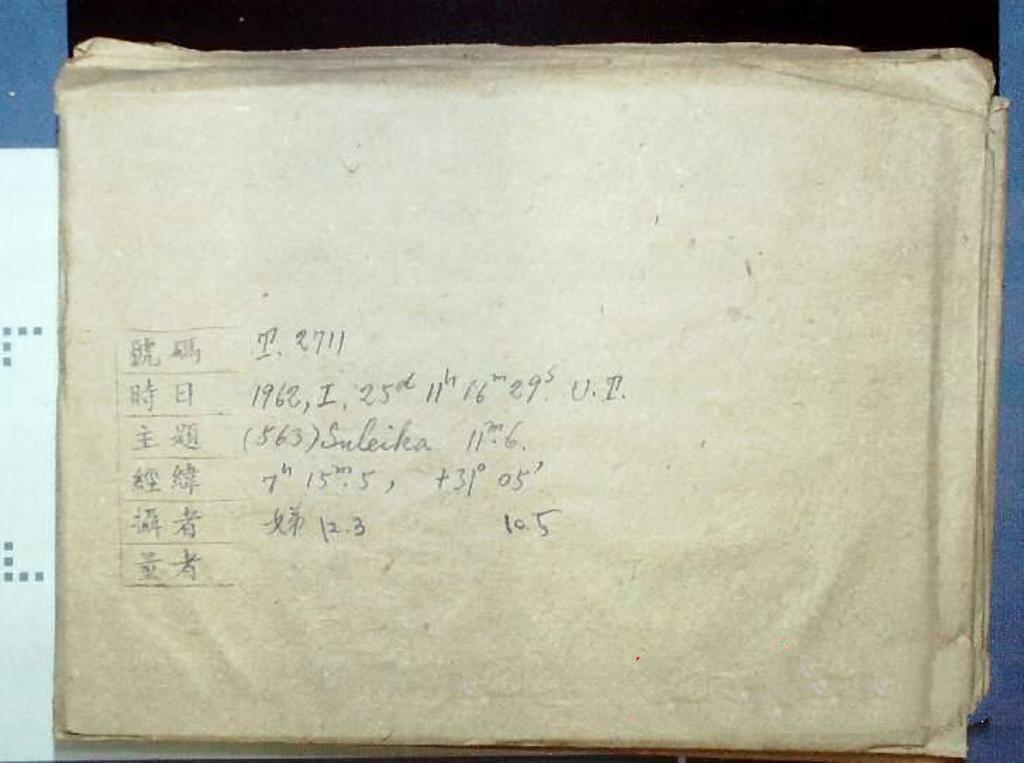 號碼 T. 2711
時日 1962, I. 25ᵈ 11ʰ 16ᵐ 29ˢ. U.T.
主題 (563) Suleika 11ᵐ.6.
經緯 7ʰ 15ᵐ.5, +31° 05'
攝者 12.3 10.5
並者